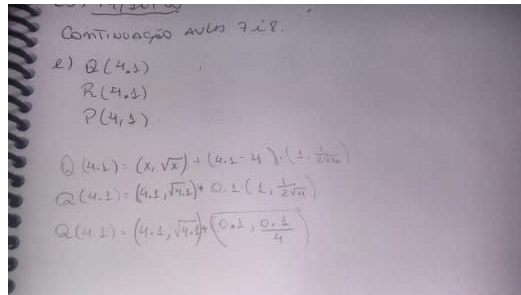 CONTINUAÇÃO AULAS 7 e 8.
e) Q(4.1)
R(4.1)
P(4,1)
Q(4.1) = (x, √x) + (4.1 - 4).(1, 1/2√4)
Q(4.1) = (4.1, √4.1) + 0.1(1, 1/2√4)
Q(4.1) = (4.1, √4.1) + (0.1, 0.1/4)